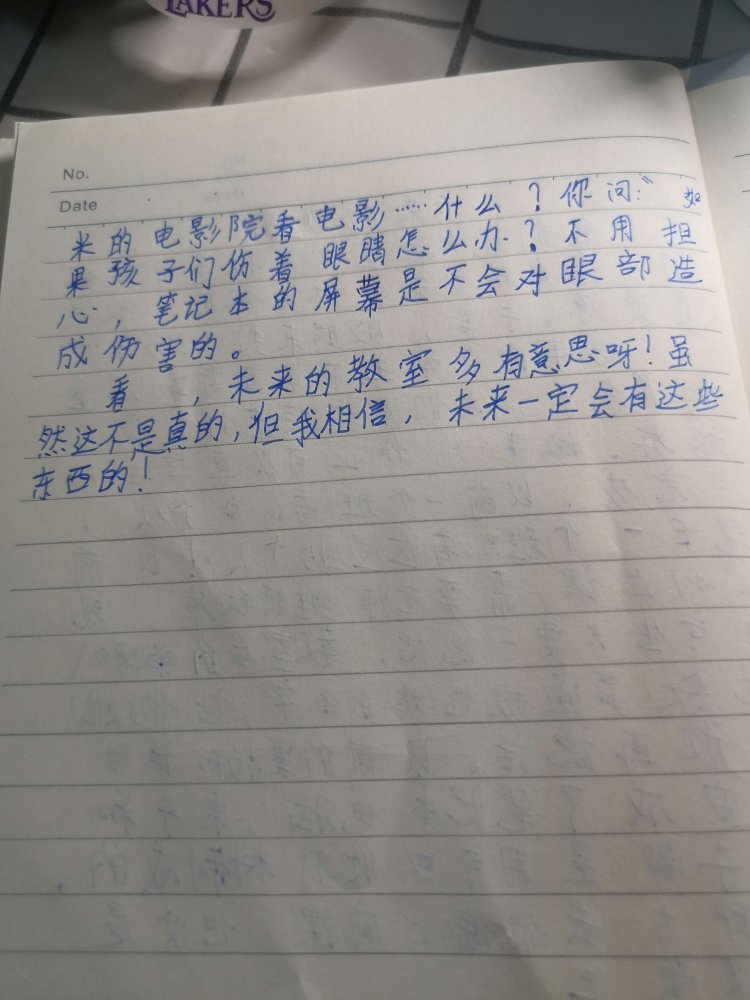 LAKERS
No.
Date
米的电影院看电影……什么?你问:“如
果孩子们伤着眼睛怎么办?不用担
心,笔记本的屏幕是不会对眼部造
成伤害的。
看,未来的教室多有意思呀!虽
然这不是真的,但我相信,未来一定会有这些
东西的!